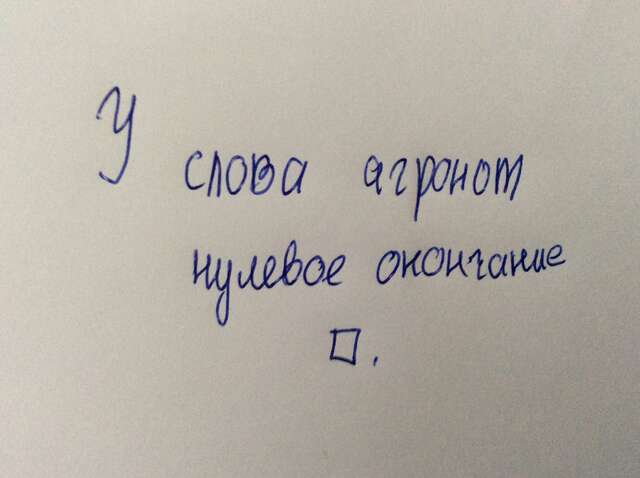 У слова агроном
нулевое окончание
□.